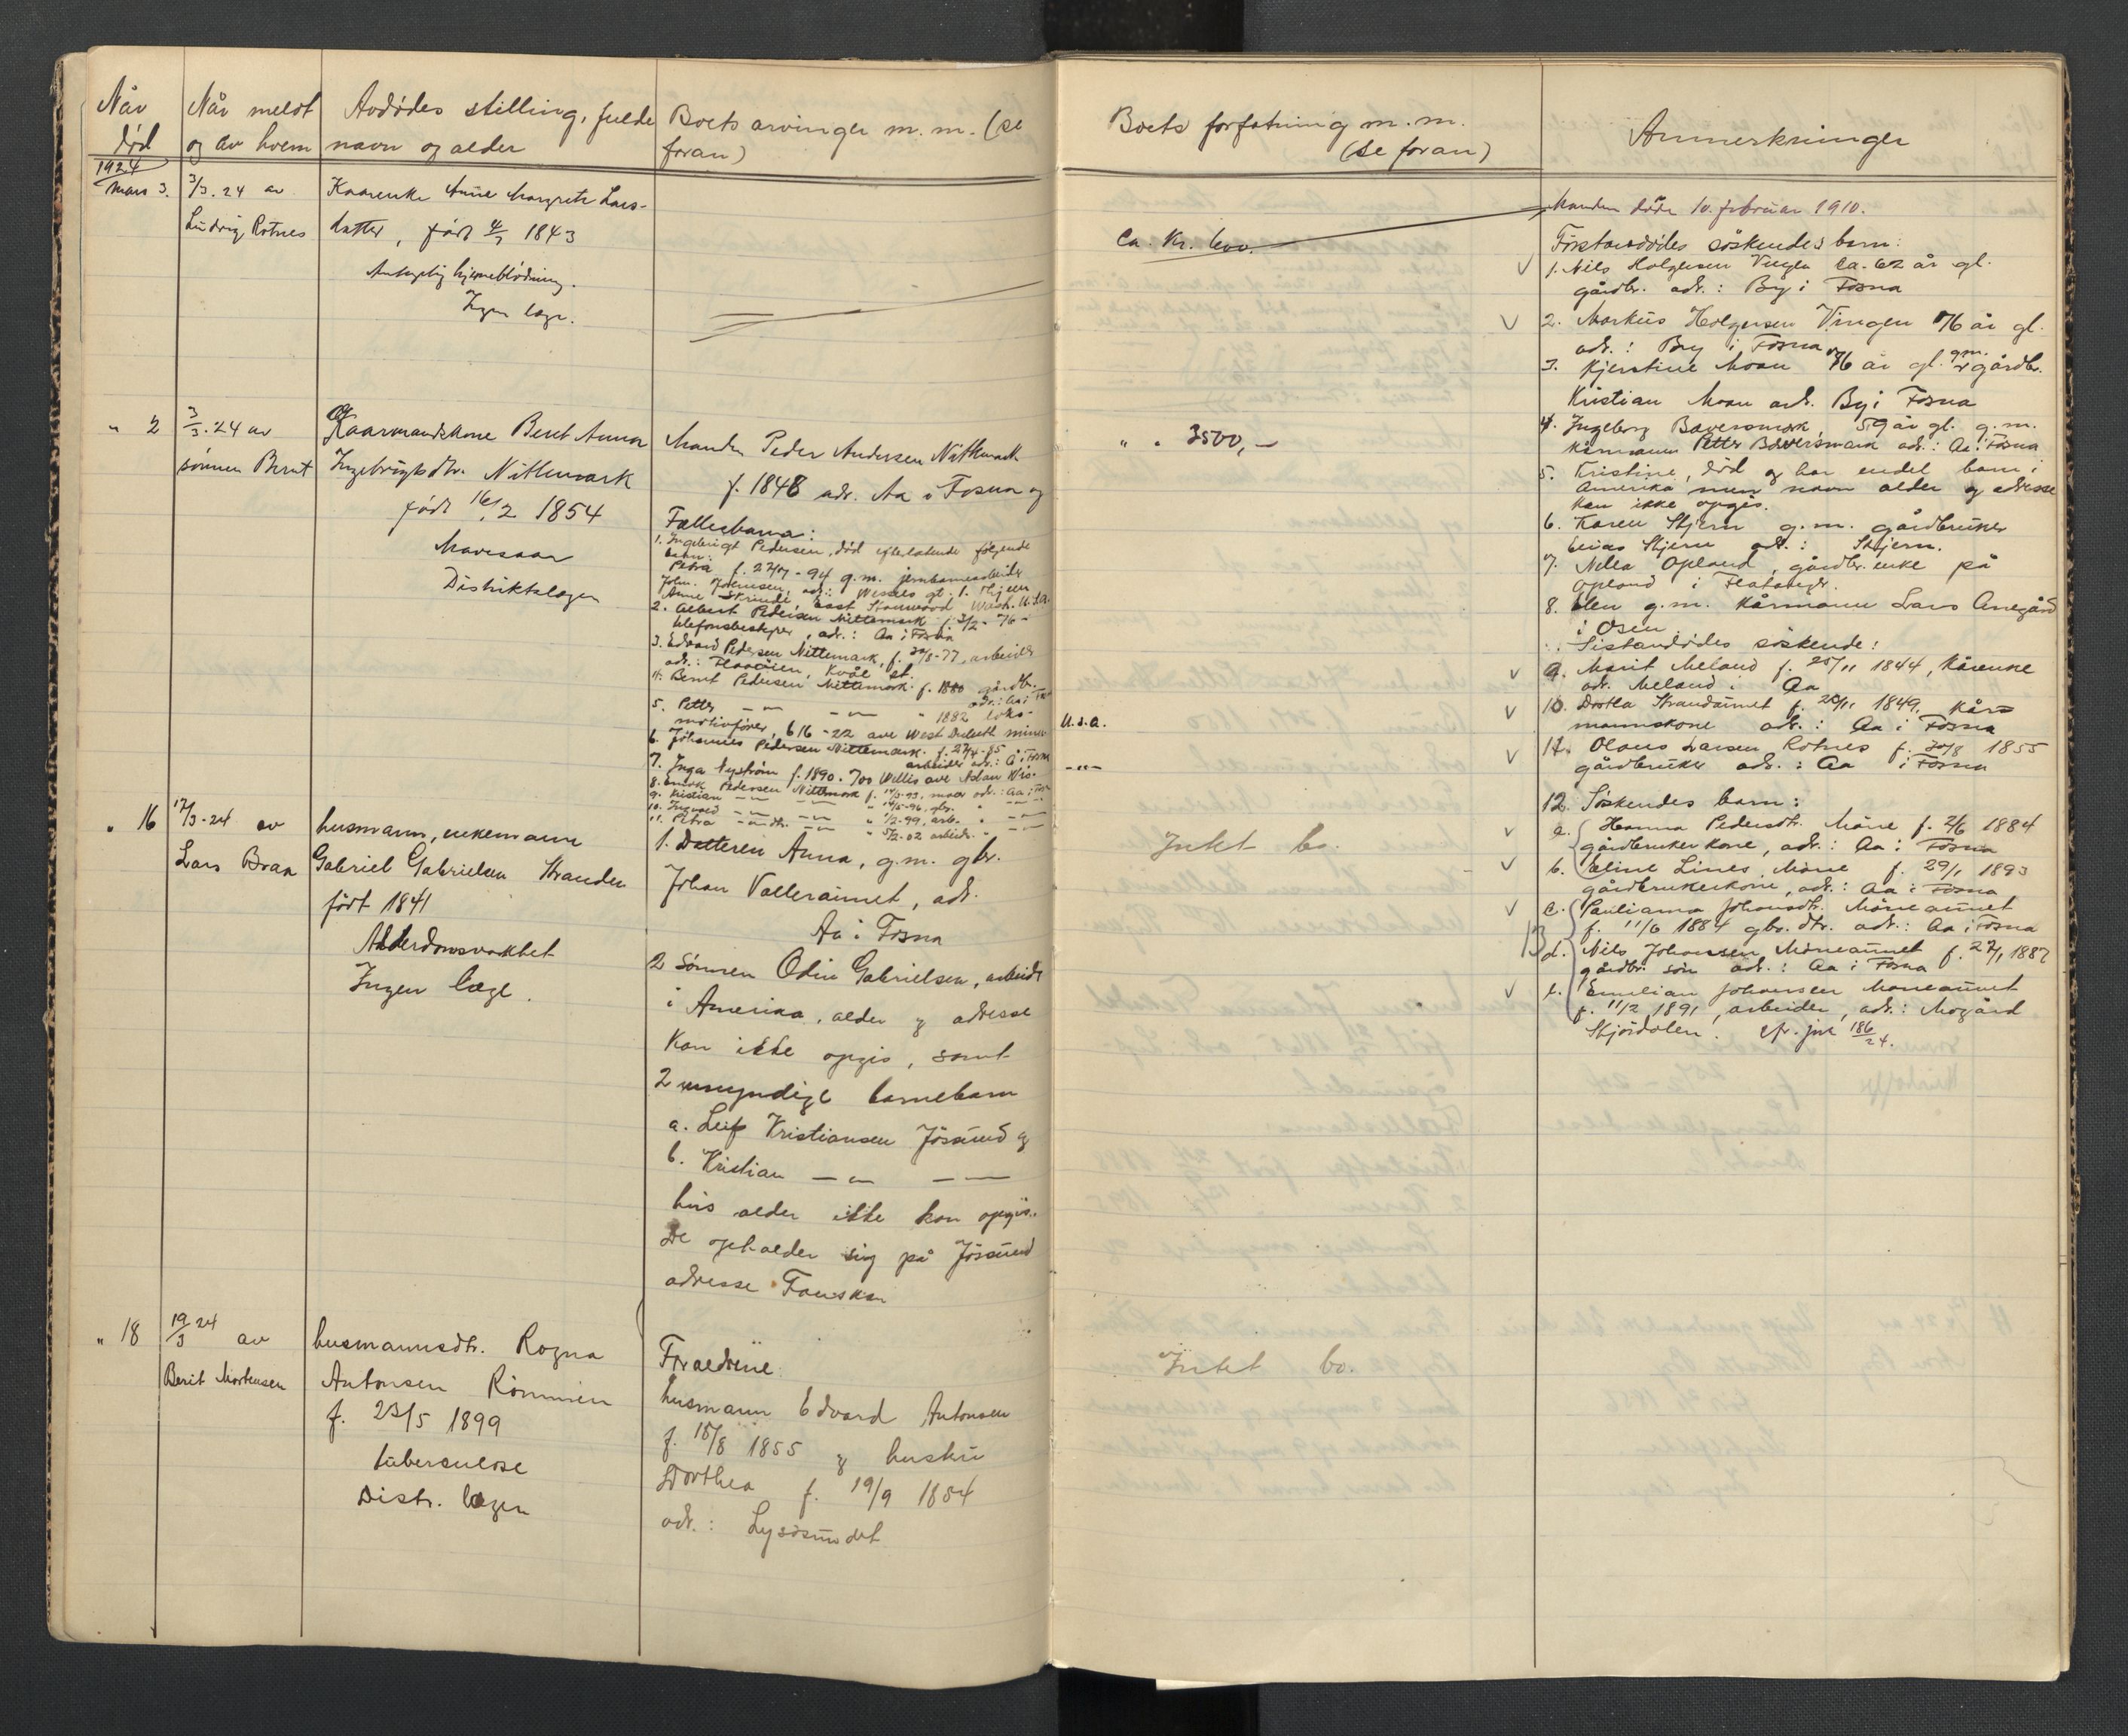 Når
død
Når meldt
og av hvem
Avdødes stilling, fulde
navn og alder
Boets arvinger m.m. (se
foran)
1924
mars 3.
3/3.24 av
Ludvig Rotnes
Kaarenke Anne Margrete Lars-
datter, født 4/7 1843
Antagelig hjerneblødning.
Ingen læge.
" 2
3/3.24 av
sønnen Bernt
Kaarmandskone Beret Anna
Ingebrigtsdtr. Nittemark
født 16/2 1854
Distriktslægen
Manden Peder Andersen Nittemark
f. 1848 adr. Aa i Fosna og
Fællesbarna:
1. Ingebrigt Pedersen, død efterlatende følgende
barn:
Petra f. 27/7-94 g.m. jernbanearbeider
2. Albert Pedersen Nittemark f. 3/2-76
adr.: Aa i Fosna
3. Edvard Pedersen Nittemark, f. 20/5-77, arbeider
4. Bernt Pedersen Nittemark f. 1880 gårdbr.
adr.: Aa i Fos
5. Petter —"— —"— " 1882 loko-
motivfører, 616-22 ave West Duluth minn
6. Johannes Pedersen Nittemark. f. 27/4-85
arbeider adr.: Å i Fosna
7. Inga Nyström f. 1890. 700 Willis ave
8. Enok Pedersen Nittemark f. 14/3-93, adr.: Aa i Fos
9. Kristian —"— —"— " 14/5-96, gbr. " —"—
10. Ingvald —"— —"— " 1/2-99, arb. " —"—
11. Petra —"— dtr. —"— " 5/2-02 arbeid. " —"—
" 16
17/3-24 av
Lars Braa
husmann, enkemann
Gabriel Gabrielsen Stranden
født 1841
Alderdomsvakhet
Ingen læge.
1. Datteren Anna, g.m. gbr.
Johan Valleraunet, adr.
Aa i Fosna
2 Sønnen Odin Gabrielsen, arbeide
i Amerika, alder og adresse
kan ikke opgis, samt
2 umyndige barnebarn
a. Leif Kristiansen Jøssund og
b. Kristian —"— —"—
hvis alder ikke kan opgis.
De opholder sig på Jøssund
adresse
" 18
19/3 24 av
Berit Mortensen
husmannsdtr. Ragna
Antonsen
f. 23/5 1899
tuberculose
Distr. lægen
Foreldrene:
husmann Edvard Antonsen
f. 18/8 1855 og hustru
Dorthea f. 19/9 1854
adr.: Lysøsundet
Boets forfatning m.m.
(se foran)
Ca. Kr. 600.
" " 3500,-
U.S.A.
—"—
Intet bo.
Intet bo.
Anmerkninger
Manden døde 10. februar 1910.
Førstavdødes søskendes barn:
1. Nils Holgersen Vingen ca. 62 år gl.
gårdbr. adr.: By i Fosna
2. Markus Holgersen Vingen 76 år gl.
adr.: By i Fosna
3. Kjerstine Moan 76 år gl. g.m. gårdbr.
Kristian Moan adr. By i Fosna
4. Ingeborg Bæversmark, 59 år gl. g.m.
kårmann Petter Bæversmark adr.: Aa i Fosna
5. Kristine, død og har endel barn i
Amerika men navn alder og adresse
kan ikke opgis.
6. Karen Stjern g.m. gårdbruker
Elias Stjern adr.: Stjern.
7. Nella Opland, gårdbr. enke på
Opland i Flatanger.
8. Elen g.m. kårmann Lars
i Osen
Sistavdødes søskende:
9. Marit Meland f. 25/11 1844, kårenke
adr. Meland i Aa
10. Dortea Strandaunet f. 20/11 1849, kår-
mannskone adr.: Aa i Fosna
11. Olaus Larsen Rotnes f. 30/8 1855
gårdbruker adr.: Aa i Fosna
12. Søskendes barn:
a. Hanna Pedersdtr. Møne f. 2/6 1884
gårdbrukerkone, adr.: Aa i Fosna
b. Eline Lines Møne f. 29/1 1893
gårdbrukerkone, adr.: Aa i Fosna
c. Pauliana Johansdtr. Møneaunet
f. 11/6 1884 gbr. dtr. adr.: Aa i Fosna
13
d. Nils Johansen Møneaunet f. 27/1 1887
gårdbr. søn adr.: Aa i Fosna
e. Emilian Johansen Møneaunet
f. 11/2 1891, arbeider, adr.: Mogård
Stjørdalen. cfr. jnr 186/24.